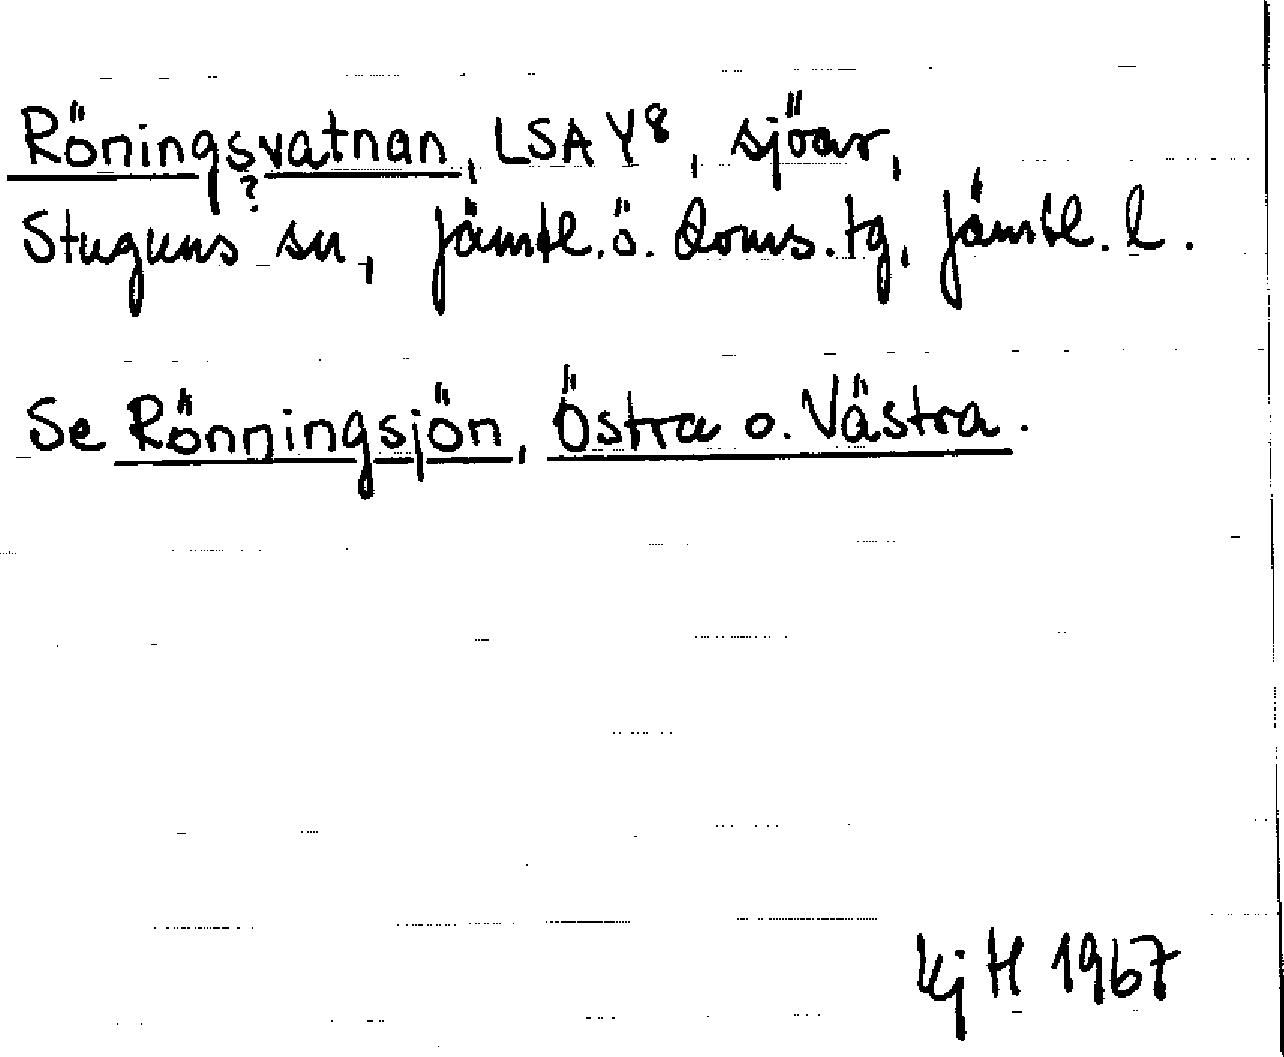 Röningsvatnan, LSA Y8, sjöar,
?
Stuguns sn, Jämtl. ö. doms. tg, Jämtl. l.
Se Rönningsjön, Östra o. Västra.
KjH 1967